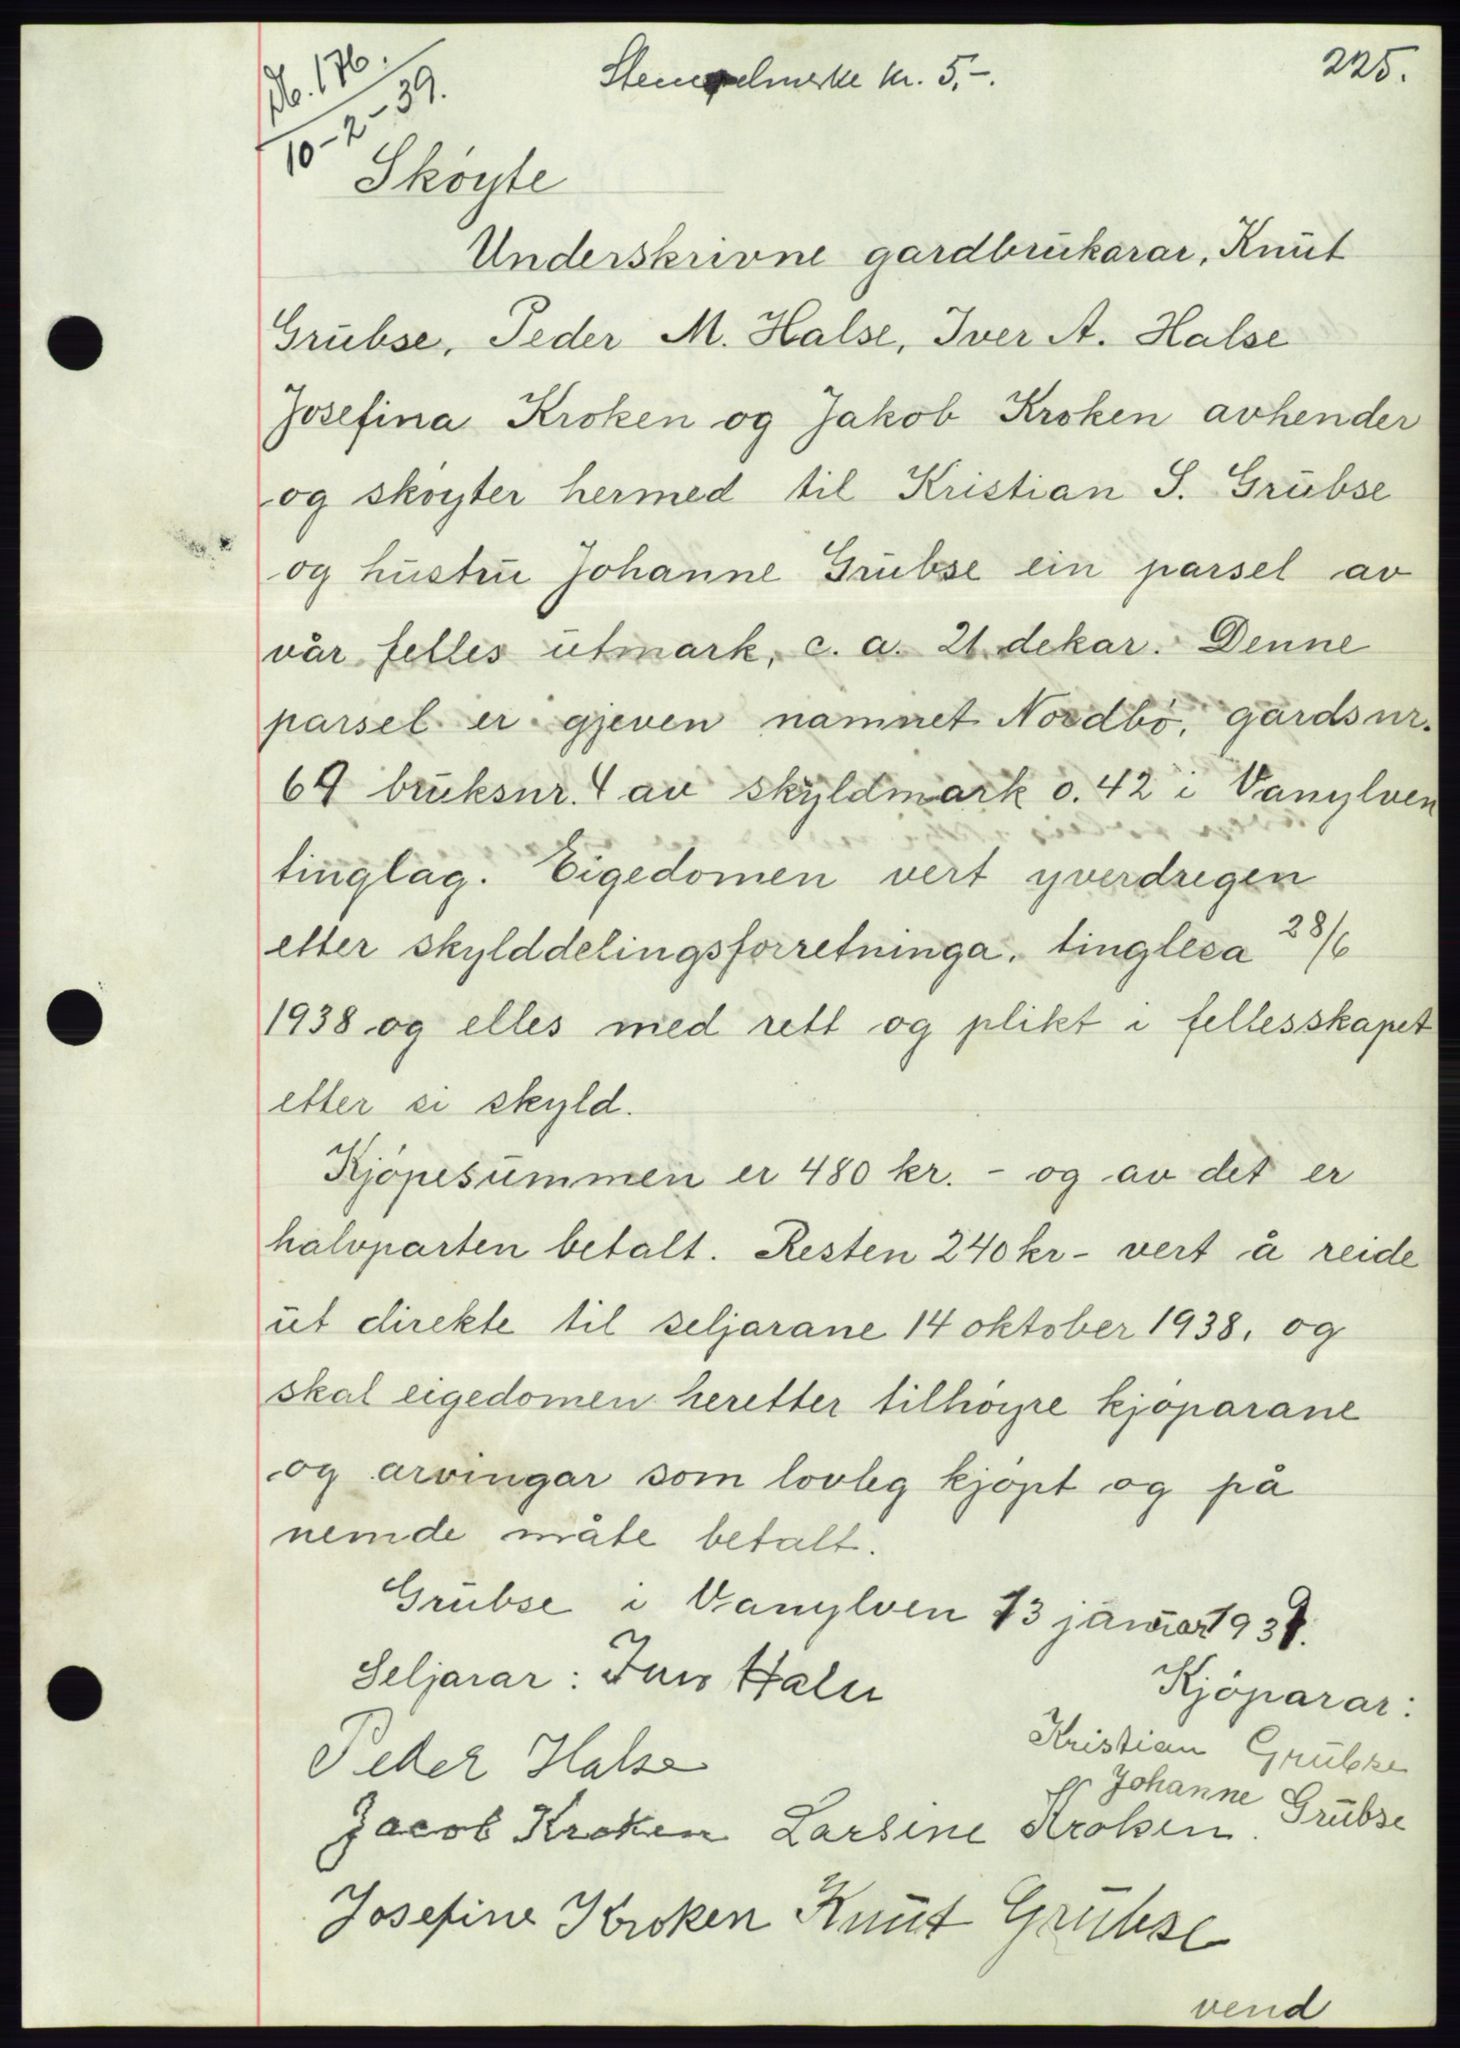 Db. 176.
10-2-39.
Stempelmerke kr. 5,-.
225.
Skøyte
Underskrivne gardbrukarar, Knut
Grubse, Peder M. Halse, Iver A. Halse
Josefina Kroken og Jakob Kroken avhender
og skøyter hermed til Kristian S. Grubse
og hustru Johanne Grubse ein parsel av
vår felles utmark, c. a. 21 dekar. Denne
parsel er gjeven namnet Nordbø, gardsnr.
69 bruksnr. 4 av skyldmark 0.42 i Vanylven
tinglag. Eigedomen vert yverdregen
etter skylddelingsforretninga, tinglesa 28/6
1938 og elles med rett og plikt i fellesskapet
etter si skyld.
Kjøpesummen er 480 kr. - og av det er
halvparten betalt. Resten 240 kr - vert å reide
ut direkte til seljarane 14 oktober 1938, og
skal eigedomen heretter tilhøyre kjøparane
og arvingar som lovleg kjøpt og på
nemde måte betalt.
Grubse i Vanylven 13 januar 1939.
Seljarar: Iver Halse
Kjøparar:
Peder Halse
Kristian Grubse
Johanne Grubse
Jacob Kroken Larsine Kroken.
Josefine Kroken Knut Grubse
vend